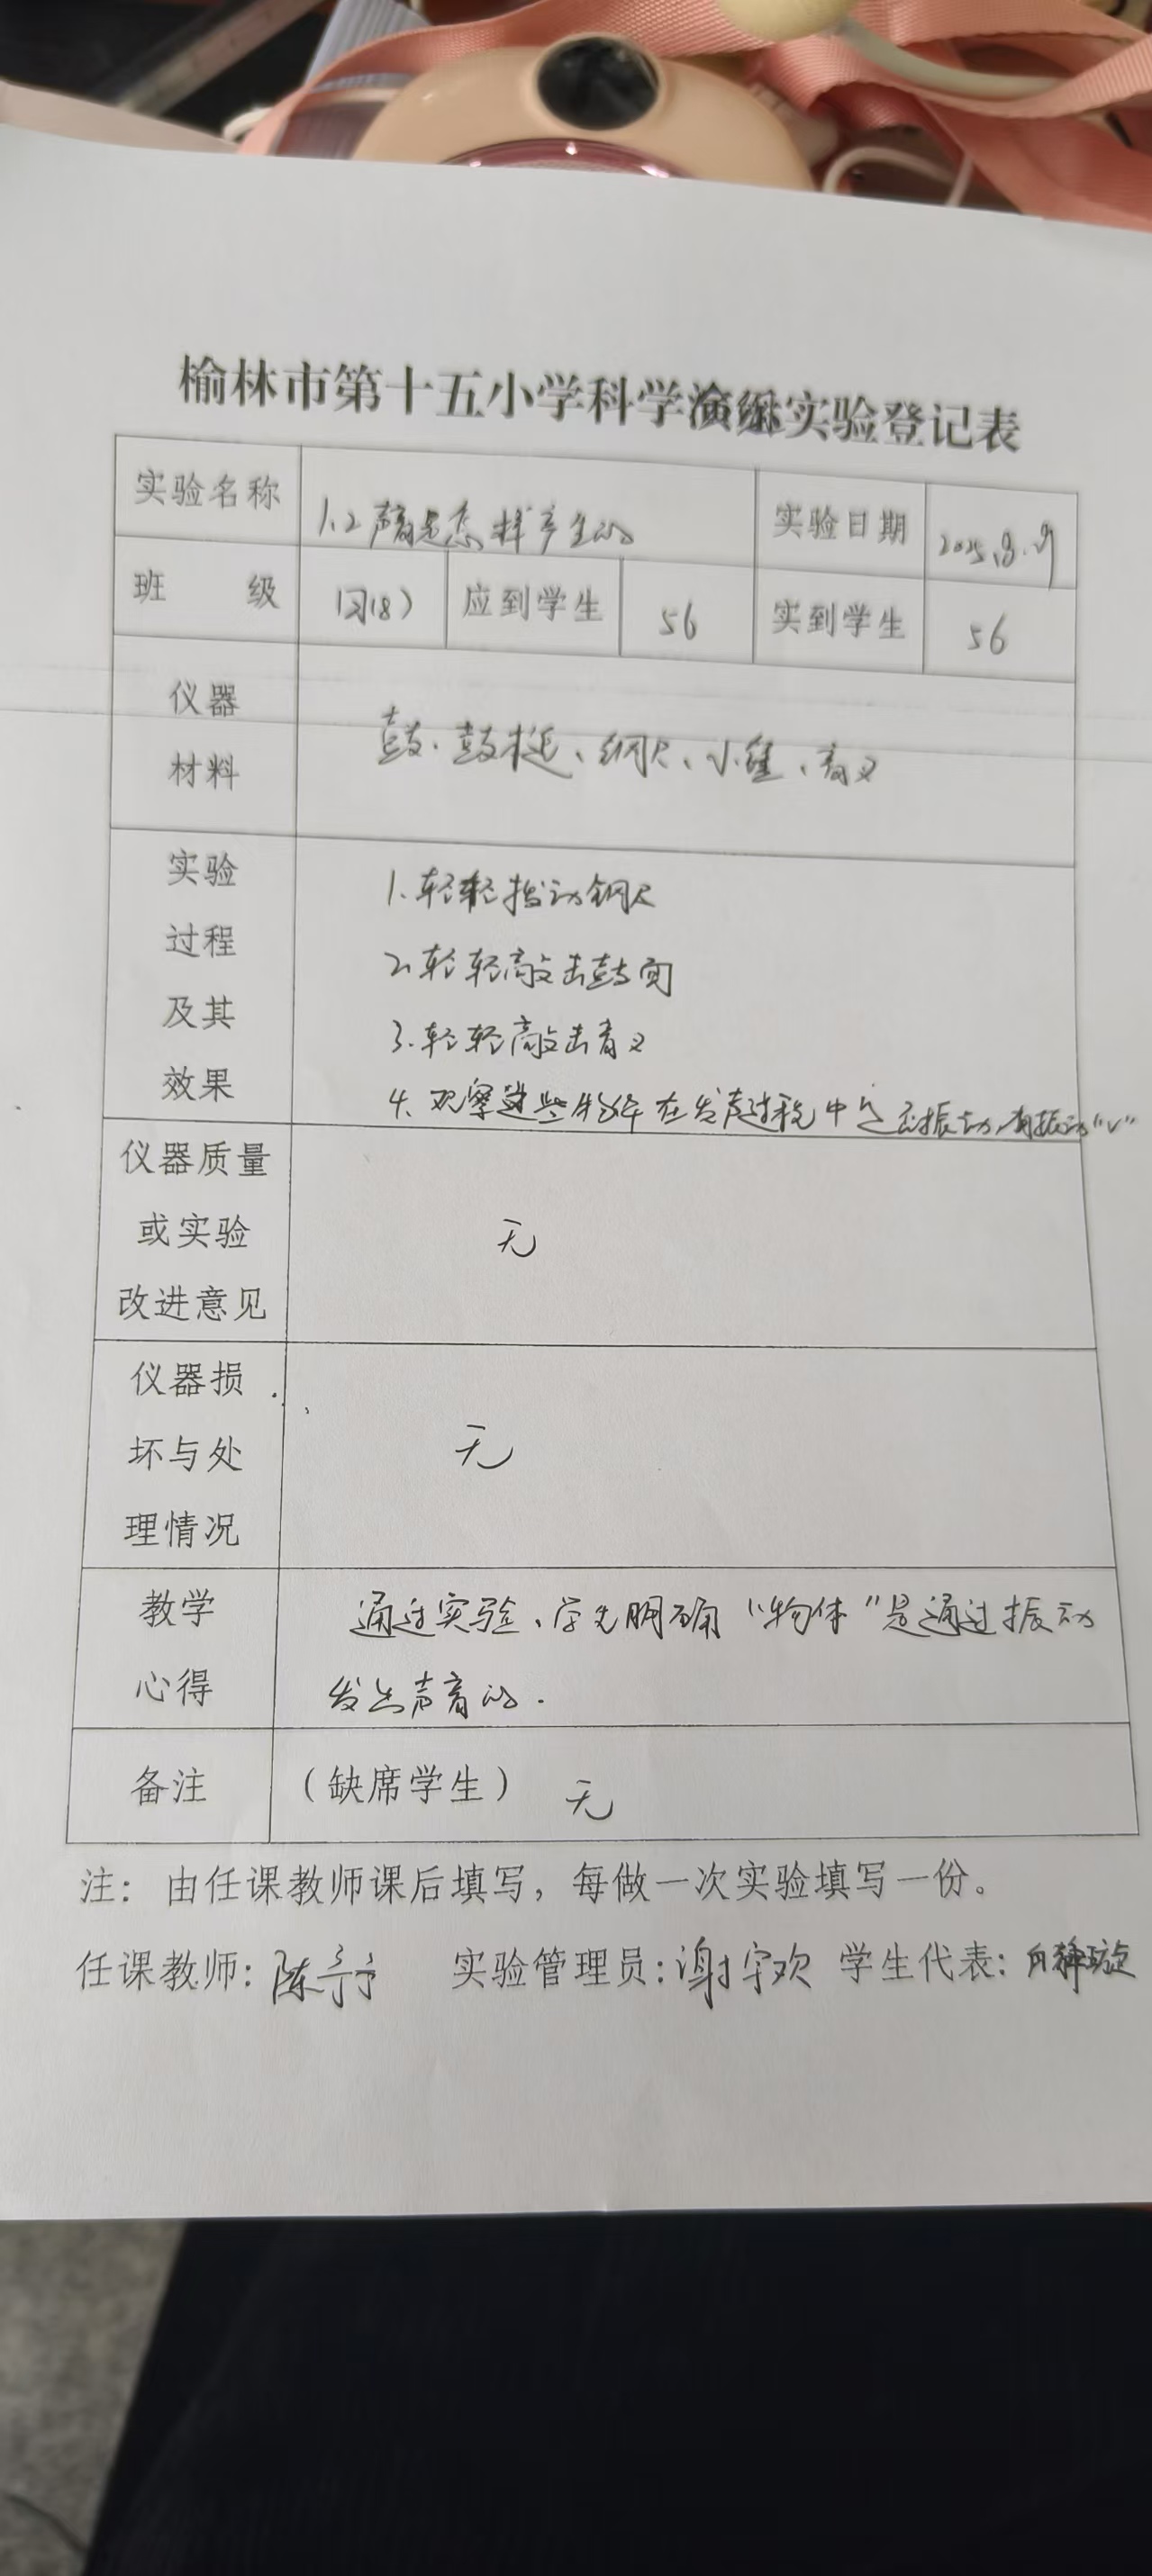 榆林市第十五小学科学演示实验登记表
实验名称 1.2声音是怎样产生的 实验日期 2025.9.
班 级 应到学生 56 实到学生 56
仪器
材料
鼓、鼓槌、钢尺、小锤、音叉
实验
过程
及其
效果
1.轻轻拨动钢尺
2.轻轻敲击鼓面
3.轻轻敲击音叉
4.观察这些物体在发声过程中是否振动,有振动"√"
仪器质量
或实验
改进意见
无
仪器损
坏与处
理情况
无
教学
心得
通过实验、学生明确"物体"是通过振动
发出声音的.
备注 (缺席学生) 无
注:由任课教师课后填写,每做一次实验填写一份。
任课教师:陈 实验管理员:谢宇欢 学生代表: